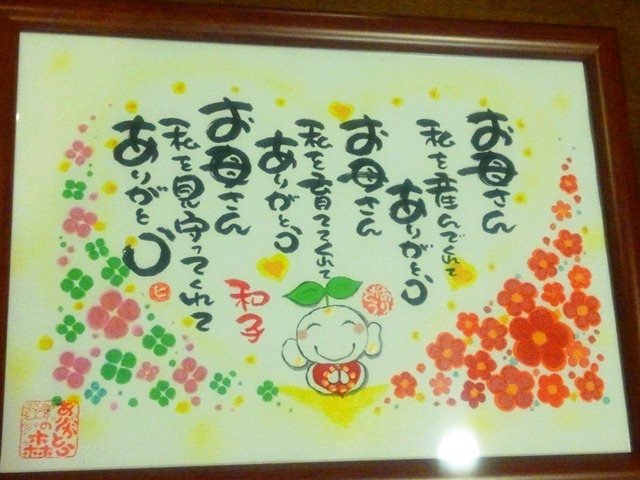 お母さん
私を産んでくれて
ありがとう
お母さん
私を育ててくれて
ありがとう
お母さん
私を見守ってくれて
ありがとう
和子
ありがとう
の森